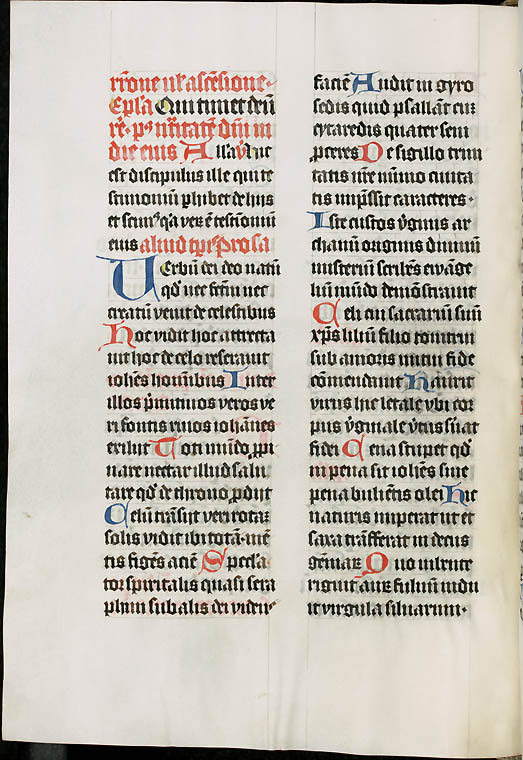 rrōne vl' ascēsione
Ep̄la Qui timet deū
rē. p̄s ur̄itatē dn̄i in
die eius Alla v̓ Hic
est discipulus ille qui te
stimoniū phibet de hijs
et scim⁹ q̓a veȝ ē testimoniū
eius aliud tp̄e p̄rosa
Verbū dei deo natū
qd̓ nec factū nec
creatū venit de celestibus
Hoc vidit hoc attrecta
uit hoc de celo reserauit
iohēs hominibus Inter
illos p̓mitiuos veros ve
ri fontis riuos iohānes
exiliit Toti mūdo ppi
nare nectar illud salu
tare qd̓ de throno pdijt
Celū trāsijt veri rotaȝ
solis vidit ibi totā mē
tis figēs aciē Specl̓a
tor spiritalis quasi sera
phim sub alis dei vidit
faciē Audit in gyro
sedis quid psallāt cuȝ
cytaredis quater seni
pceres De sigillo trini
tatis nr̄e nūmo ciuita
tis imp̄ssit caracteres.
Iste custos v̓ginis ar
chanū originis diuine
misteriū scribēs ewāge
liū mūdo demōstrauit
Celi cui sacrariū suū
xp̄s liliū filio tonitrui
sub amoris mutui fide
cōmendauit Haurit
virus hic letale vbi cor
pus v̓ginale v̓tus s̓uat
fidei Pena stupet qd̓
in pena sit iohēs sine
pena bulientis olei Hic
naturis imperat vt et
saxa trāsferat in decus
gēmaȝ Quo iubente
riguit auȝ fuluū indu
it virgula siluarum.